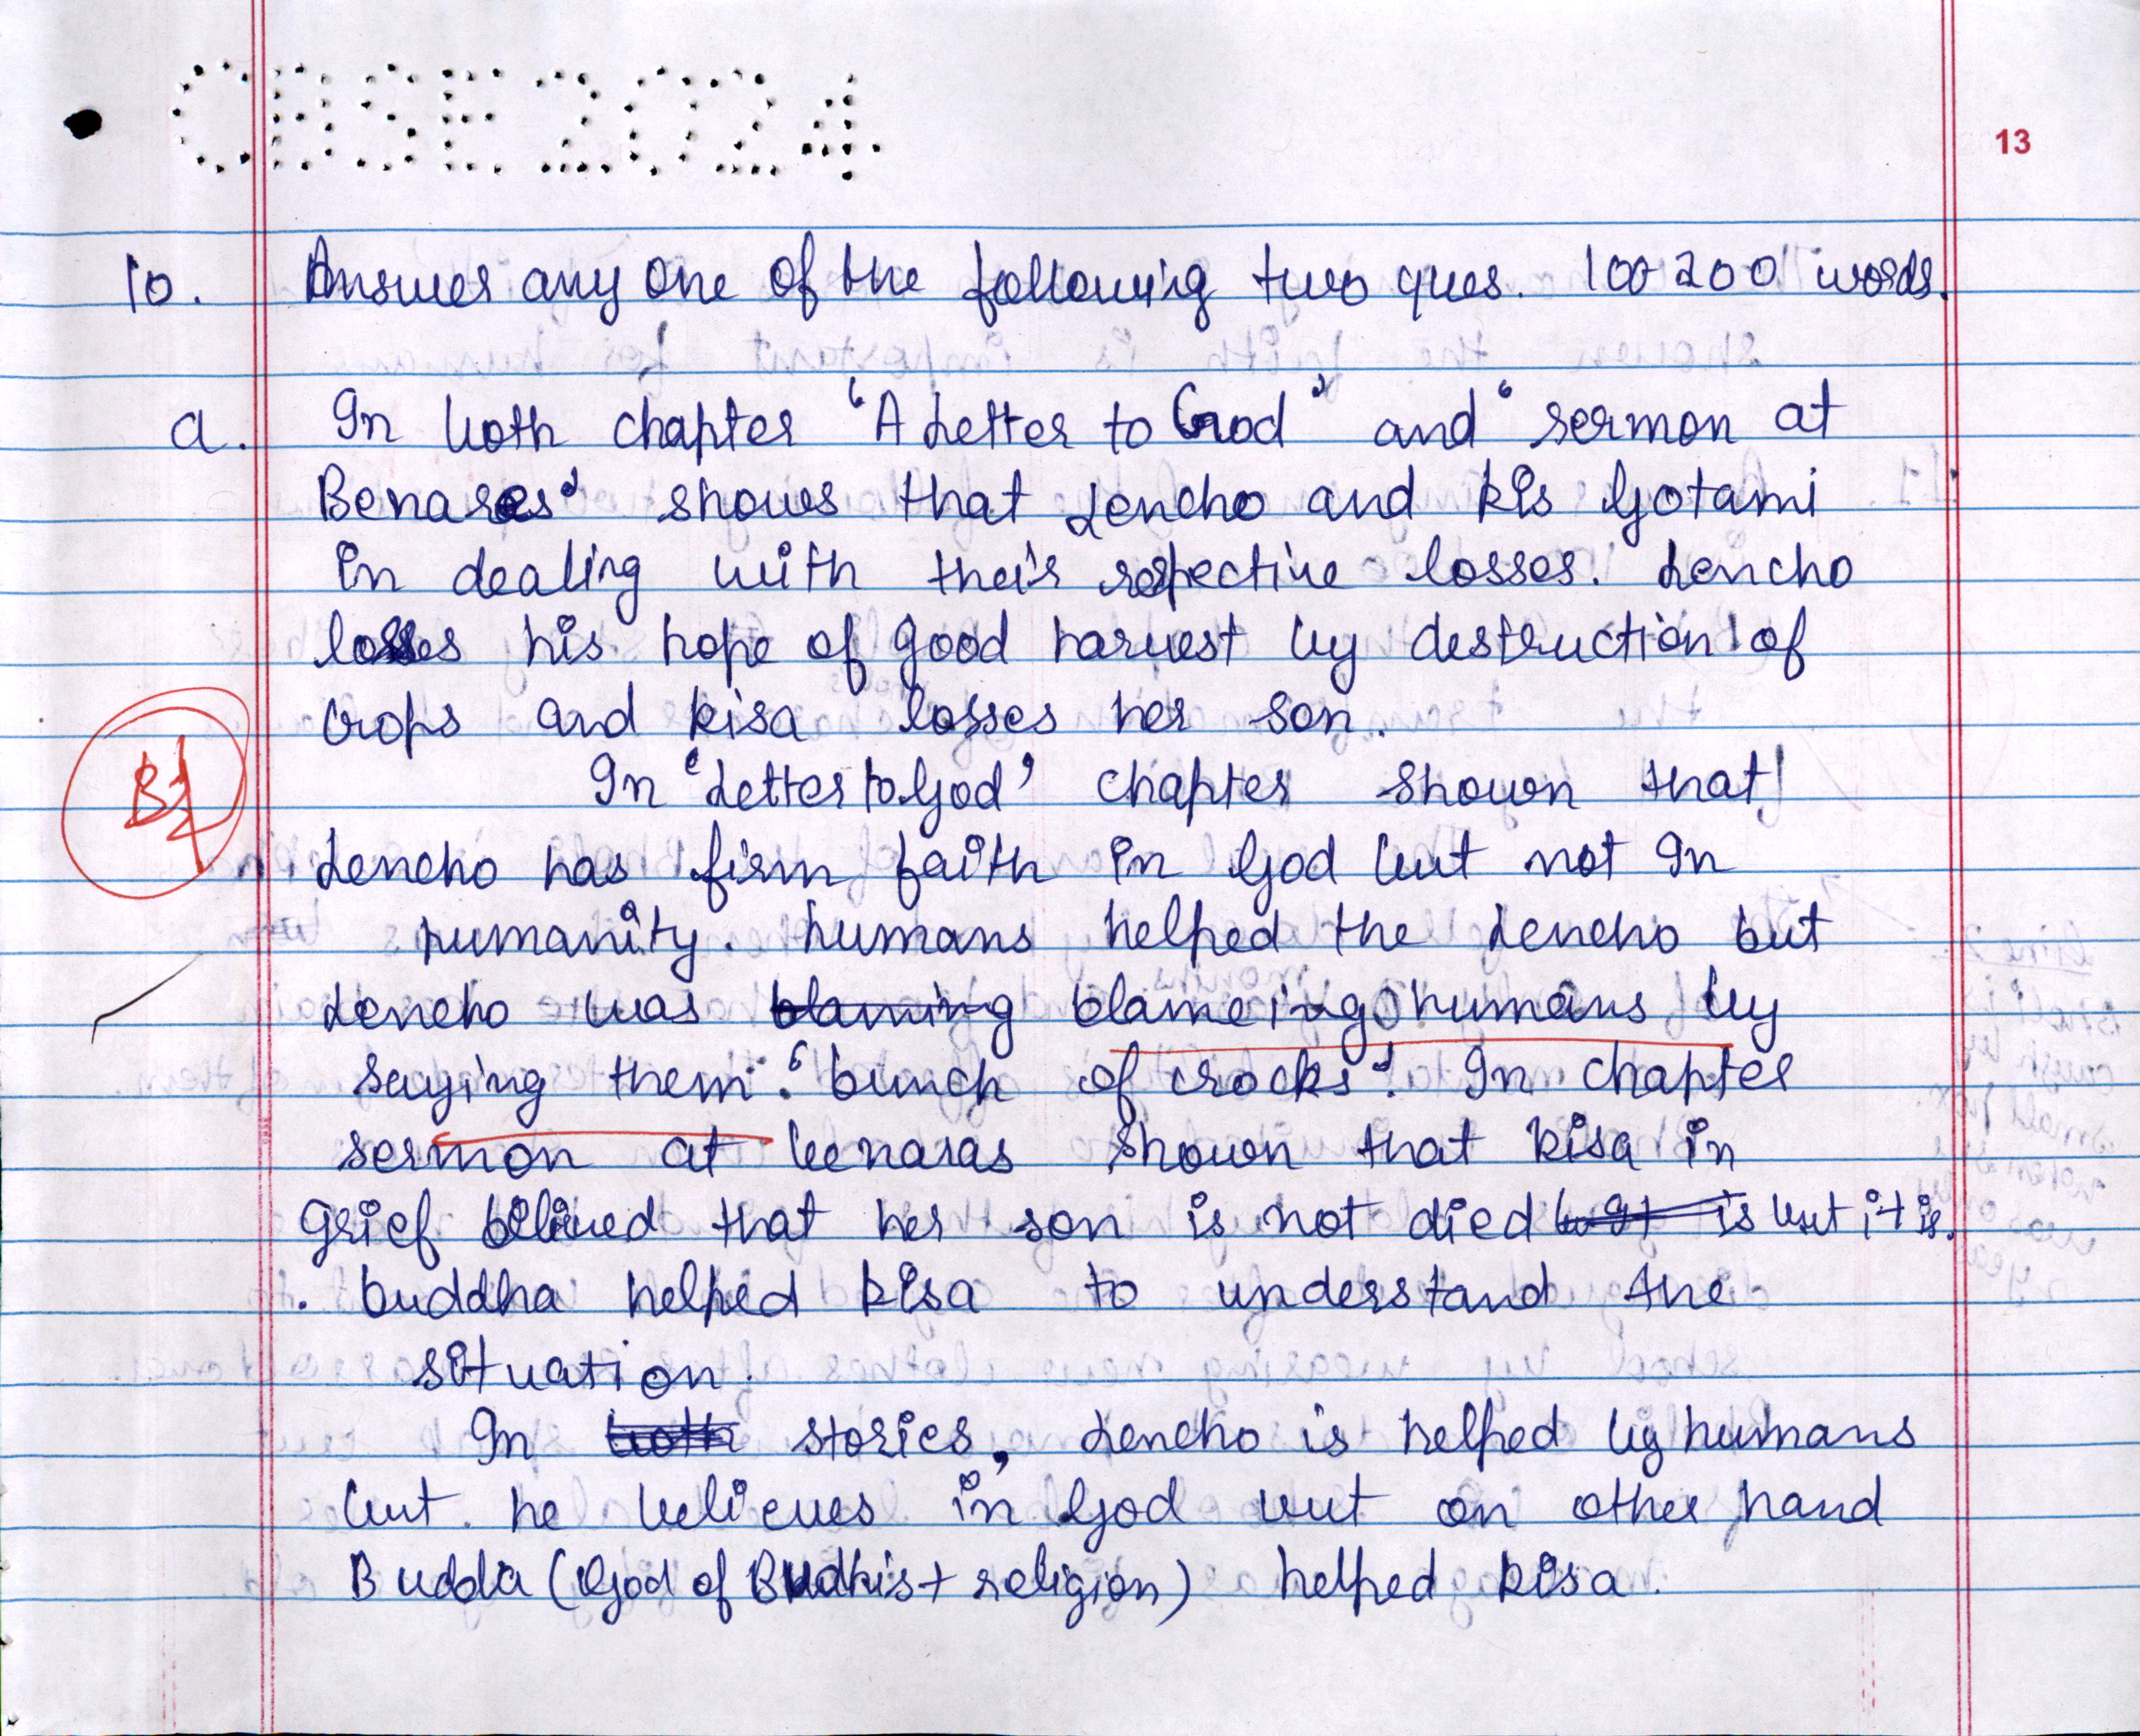 CBSE 2024
13
10. Answer any one of the following two ques. 100-200 words.
a. In both chapter 'A Letter to God' and 'sermon at
Benares' shows that Lencho and Kis Gotami
in dealing with their respective losses. Lencho
losses his hope of good harvest by destruction of
crops and kisa losses her son.
In 'Letter to God' chapter shown that
Lencho has firm faith in God but not In
humanity. humans helped the Lencho but
Lencho was blaming blameing humans by
saying them 'bunch of crocks'. In chapter
sermon at benaras shown that kisa in
grief belived that her son is not died is but it is.
. buddha helped kisa to understand the
situation.
In both stories, Lencho is helped by humans
but he believes in God but on other hand
Budda (God of Budhist religion) helped kisa.